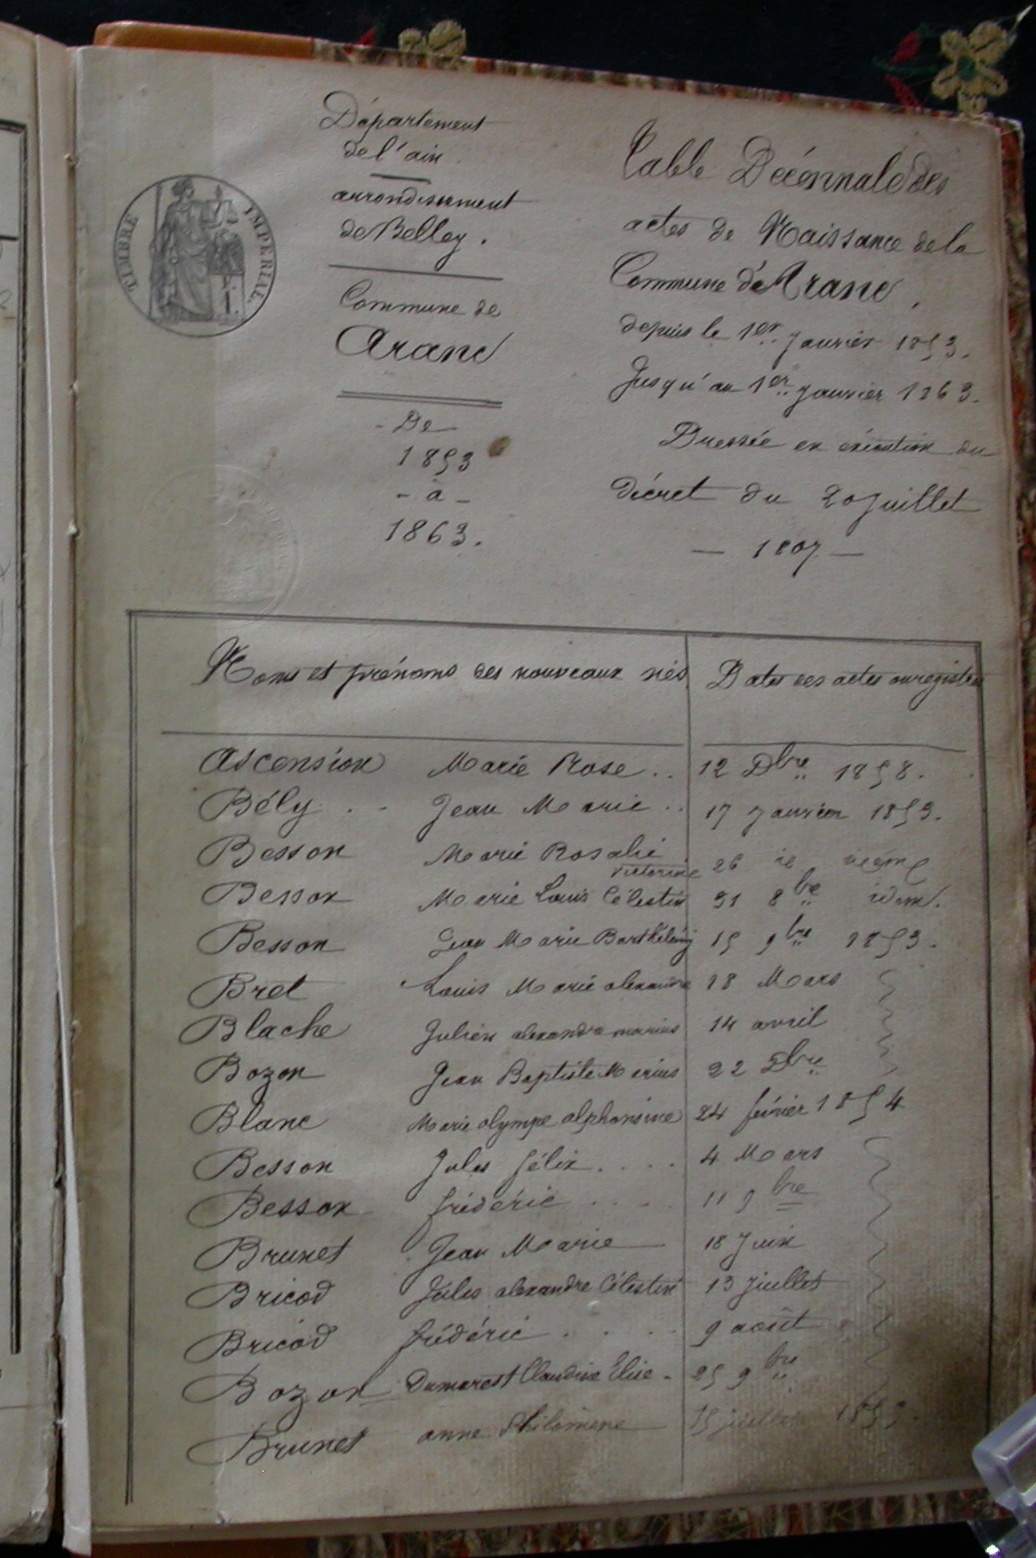 TIMBRE IMPERIAL.
Département
de l'ain
arrondissement
de Belley.
Commune de
Aranc
- De -
1853
- à -
1863.
Table Décennale des
actes de Naissance de la
Commune d'Aranc,
depuis le 1er Janvier 1853.
Jusqu'au 1er Janvier 1863.
Dressée en exécution du
décret du 20 Juillet
— 1807 —
Noms et prénoms des nouveaux nés Dates des actes enregistrés
Ascension Marie Rose .. 12 Dbre 1858.
Bély . - Jean Marie .. 17 Janvier 1853.
Besson Marie Rosalie Victorine 26 id
Besson Marie Louis Célestin 31 8bre idem.
Besson Jean Marie Barthélemy 15 9bre 1853.
Bret Louis Marie 18 Mars
Blache Julien alexandre marius 14 avril
Bozon Jean Baptiste Marius 22 Dbre
Blanc Marie olympe alphonsine 24 février 1854
Besson Jules félix . . . . 4 Mars
Besson frédéric . . . . 11 9bre
Brunet Jean Marie 18 Juin
Bricod Jules alexandre Célestin 13 Juillet
Bricod frédéric . . . . 9 août
Bozon Dumarest Claudine Elise - 25 9bre
Brunet anne Philomène 15 juillet